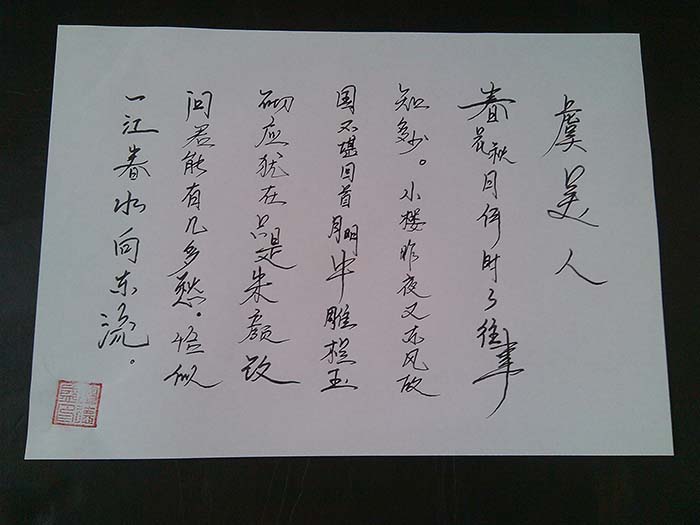 虞美人
春花秋月何时了往事
知多少。小楼昨夜又东风故
国不堪回首月明中雕栏玉
砌应犹在只是朱颜改
问君能有几多愁。恰似
一江春水向东流。